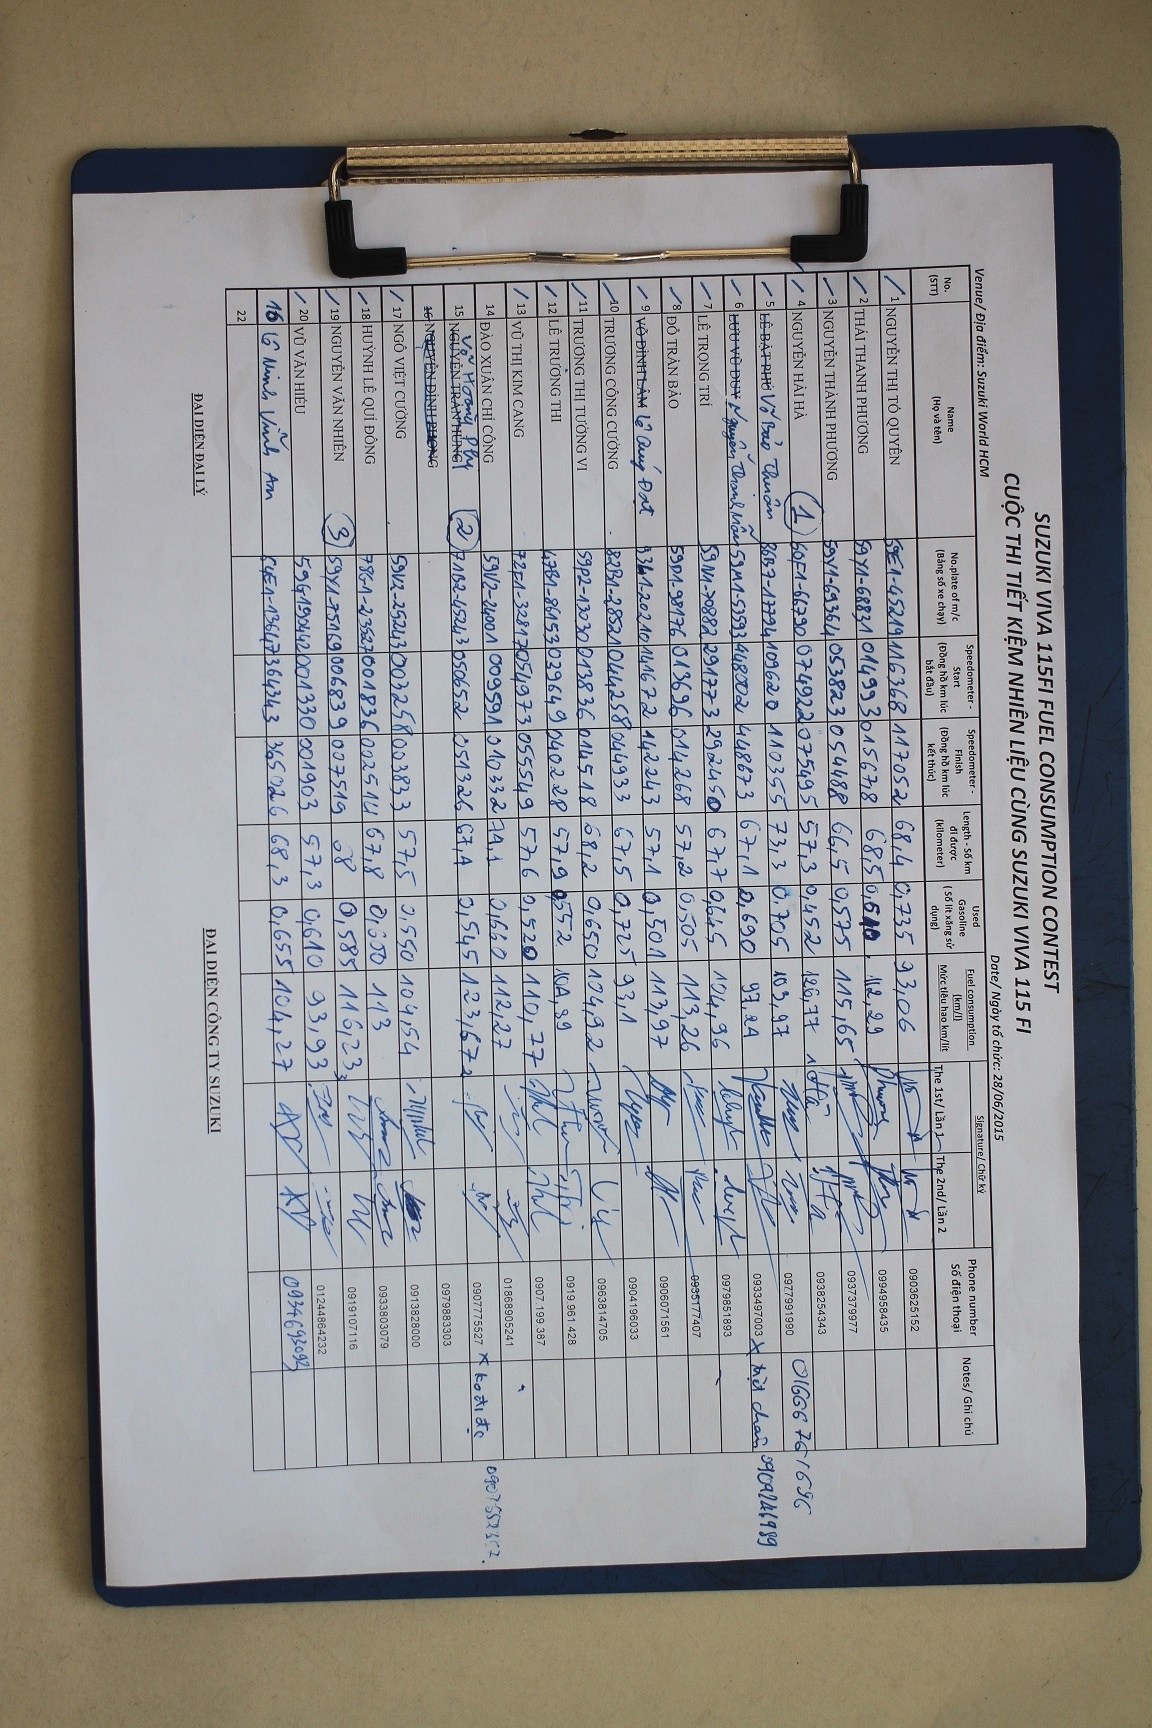 SUZUKI VIVA 115FI FUEL CONSUMPTION CONTEST
CUỘC THI TIẾT KIỆM NHIÊN LIỆU CÙNG SUZUKI VIVA 115 FI
Venue/ Địa điểm: Suzuki World HCM Date/ Ngày tổ chức: 28/06/2015
No. (STT) Name (Họ và tên) No.plate of m/c (Bảng số xe chạy) Speedometer - Start (Đồng hồ km lúc bắt đầu) Speedometer - Finish (Đồng hồ km lúc kết thúc) Length - Số km đi được (kilometer) Used Gasoline (Số lít xăng sử dụng) Fuel consumption (km/l) Mức tiêu hao km/lít Signature/ Chữ ký The 1st/ Lần 1 The 2nd/ Lần 2 Phone number Số điện thoại Notes/ Ghi chú
1 NGUYỄN THỊ TỐ QUYÊN 59E1-45219 116368 117052 68,4 0,735 93,06 0903625152
2 THÁI THANH PHƯƠNG 59Y1-68831 014993 015678 68,5 0,610 112,29 0994958435
3 NGUYỄN THÀNH PHƯƠNG 59Y1-69364 053823 054488 66,5 0,575 115,65 0937379977
4 NGUYỄN HẢI HÀ 1 60F1-66790 074922 075495 57,3 0,452 126,77 0938254343
5 LÊ BẬT PHÚ Võ Bảo Thuân 86B7-17794 109620 110355 73,3 0.705 103,97 0977991990 01666761696
6 LƯU VŨ DUY Nguyễn Thành Mẫn 59M1-51593 448002 448673 67,1 0,690 97.24 0933497003 x 0909246989
7 LÊ TRỌNG TRÍ 59N1-70882 291773 292450 67,7 0,645 104,96 0979851893
8 ĐỖ TRẦN BẢO 59D1-98176 013696 014268 57,2 0.505 113,26 0935177407
9 VÕ ĐÌNH LÂM Lê Quý Đạt 93H1-20210 141672 142243 57,1 0,501 113,97 0906071561
10 TRƯƠNG CÔNG CƯỜNG 82B1-28521 044258 044933 67,5 0,725 93,1 0904196033
11 TRƯƠNG THỊ TƯỜNG VI 59P2-13030 013836 014518 68,2 0,650 104,92 0963814705
12 LÊ TRƯỜNG THI 47B1-86153 039649 040228 57,9 0,552 104,89 0919.961.428
13 VŨ THỊ KIM CANG 72F1-32817 054973 055549 57,6 0,520 110,77 0907.199.387
14 ĐÀO XUÂN CHÍ CÔNG 59V2-24001 009591 010332 74,1 0,660 112,27 01868905241
15 NGUYỄN TRẦN HÙNG Võ Hoàng Phy 2 71B2-45243 050652 051326 67,4 0,545 123,67 0907775527 x ko đi đc
16 NGUYỄN ĐÌNH PHONG 0979883303
17 NGÔ VIỆT CƯỜNG 59V2-25243 003258 003833 57,5 0.550 104,54 0913828000
18 HUỲNH LÊ QUI ĐÔNG 78G1-23527 001836 002514 67,8 0,600 113 0933803079
19 NGUYỄN VĂN NHIÊN 3 59Y1-75169 006839 007519 68 0,585 116,23 0919107116
20 VŨ VĂN HIẾU 59G1-90442 001330 001903 57,3 0,610 93,93 01244864232
16 Lê Minh Vĩnh An 54E1-13647 364343 365026 68,3 0.655 104,27 0934693093
22
ĐẠI DIỆN ĐẠI LÝ ĐẠI DIỆN CÔNG TY SUZUKI